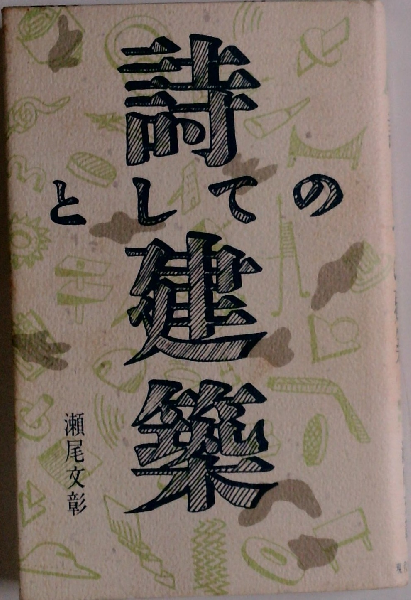 詩
としての
建
築
瀬尾文彰